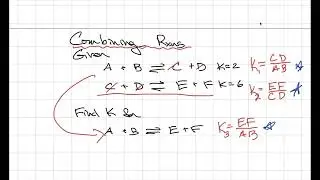 Combining Rxns
Given
A + B ⇌ C + D K=2 K₁=CD/AB
C + D ⇌ E + F K=6 K₂=EF/CD
Find K for
A + B ⇌ E + F K₃=EF/AB